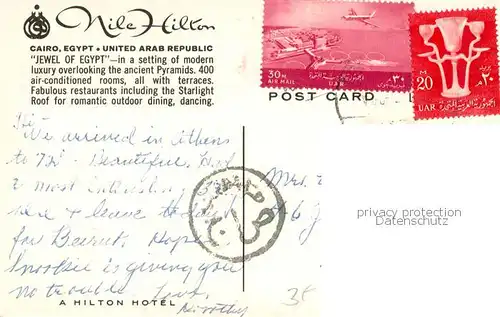 Nile Hilton
CAIRO, EGYPT • UNITED ARAB REPUBLIC
"JEWEL OF EGYPT"—in a setting of modern
luxury overlooking the ancient Pyramids. 400
air-conditioned rooms, all with terraces.
Fabulous restaurants including the Starlight
Roof for romantic outdoor dining, dancing.
30 M
AIR MAIL
UAR
٣٠
M
20
UAR
٢٠
POST CARD
We arrived in Athens
to 72° - Beautiful. Had
a most interesting
here & leave today
for Beirut. Hope
Snookie is giving you
no trouble. Love,
Dorothy
Mrs.
privacy protection
Datenschutz
A HILTON HOTEL